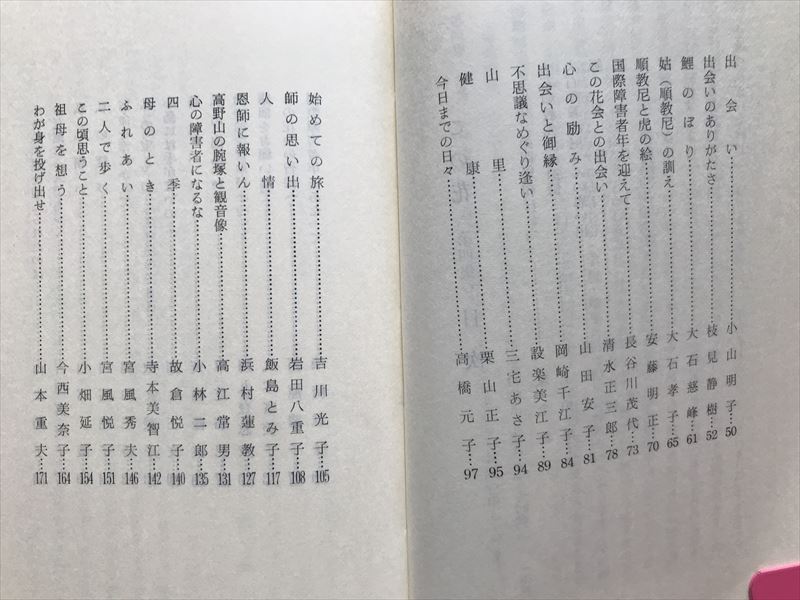 出会い……小山明子…50
出会いのありがたさ……枝見静樹…52
鯉のぼり……大石慈峰…61
姑(順教尼)の訓え……大石孝子…65
順教尼と虎の絵……安藤明正…70
国際障害者年を迎えて……長谷川茂代…73
この花会との出会い……清水正三郎…78
心の励み……山田安子…81
出会いと御縁……岡崎千江子…84
不思議なめぐり逢い……設楽美江子…89
山里……三宅あさ子…94
健康……栗山正子…95
今日までの日々……高橋元子…97
始めての旅……吉川光子…105
師の思い出……岩田八重子…108
人情……飯島とみ子…117
恩師に報いん……浜村蓮教…127
高野山の腕塚と観音像……高江常男…131
心の障害者になるな……小林二郎…135
四季……故倉悦子…140
母のとき……寺本美智江…142
ふれあい……宮風秀夫…146
二人で歩く……宮風悦子…151
この頃思うこと……小畑延子…154
祖母を想う……今西美奈子…164
わが身を投げ出せ……山本重夫…171